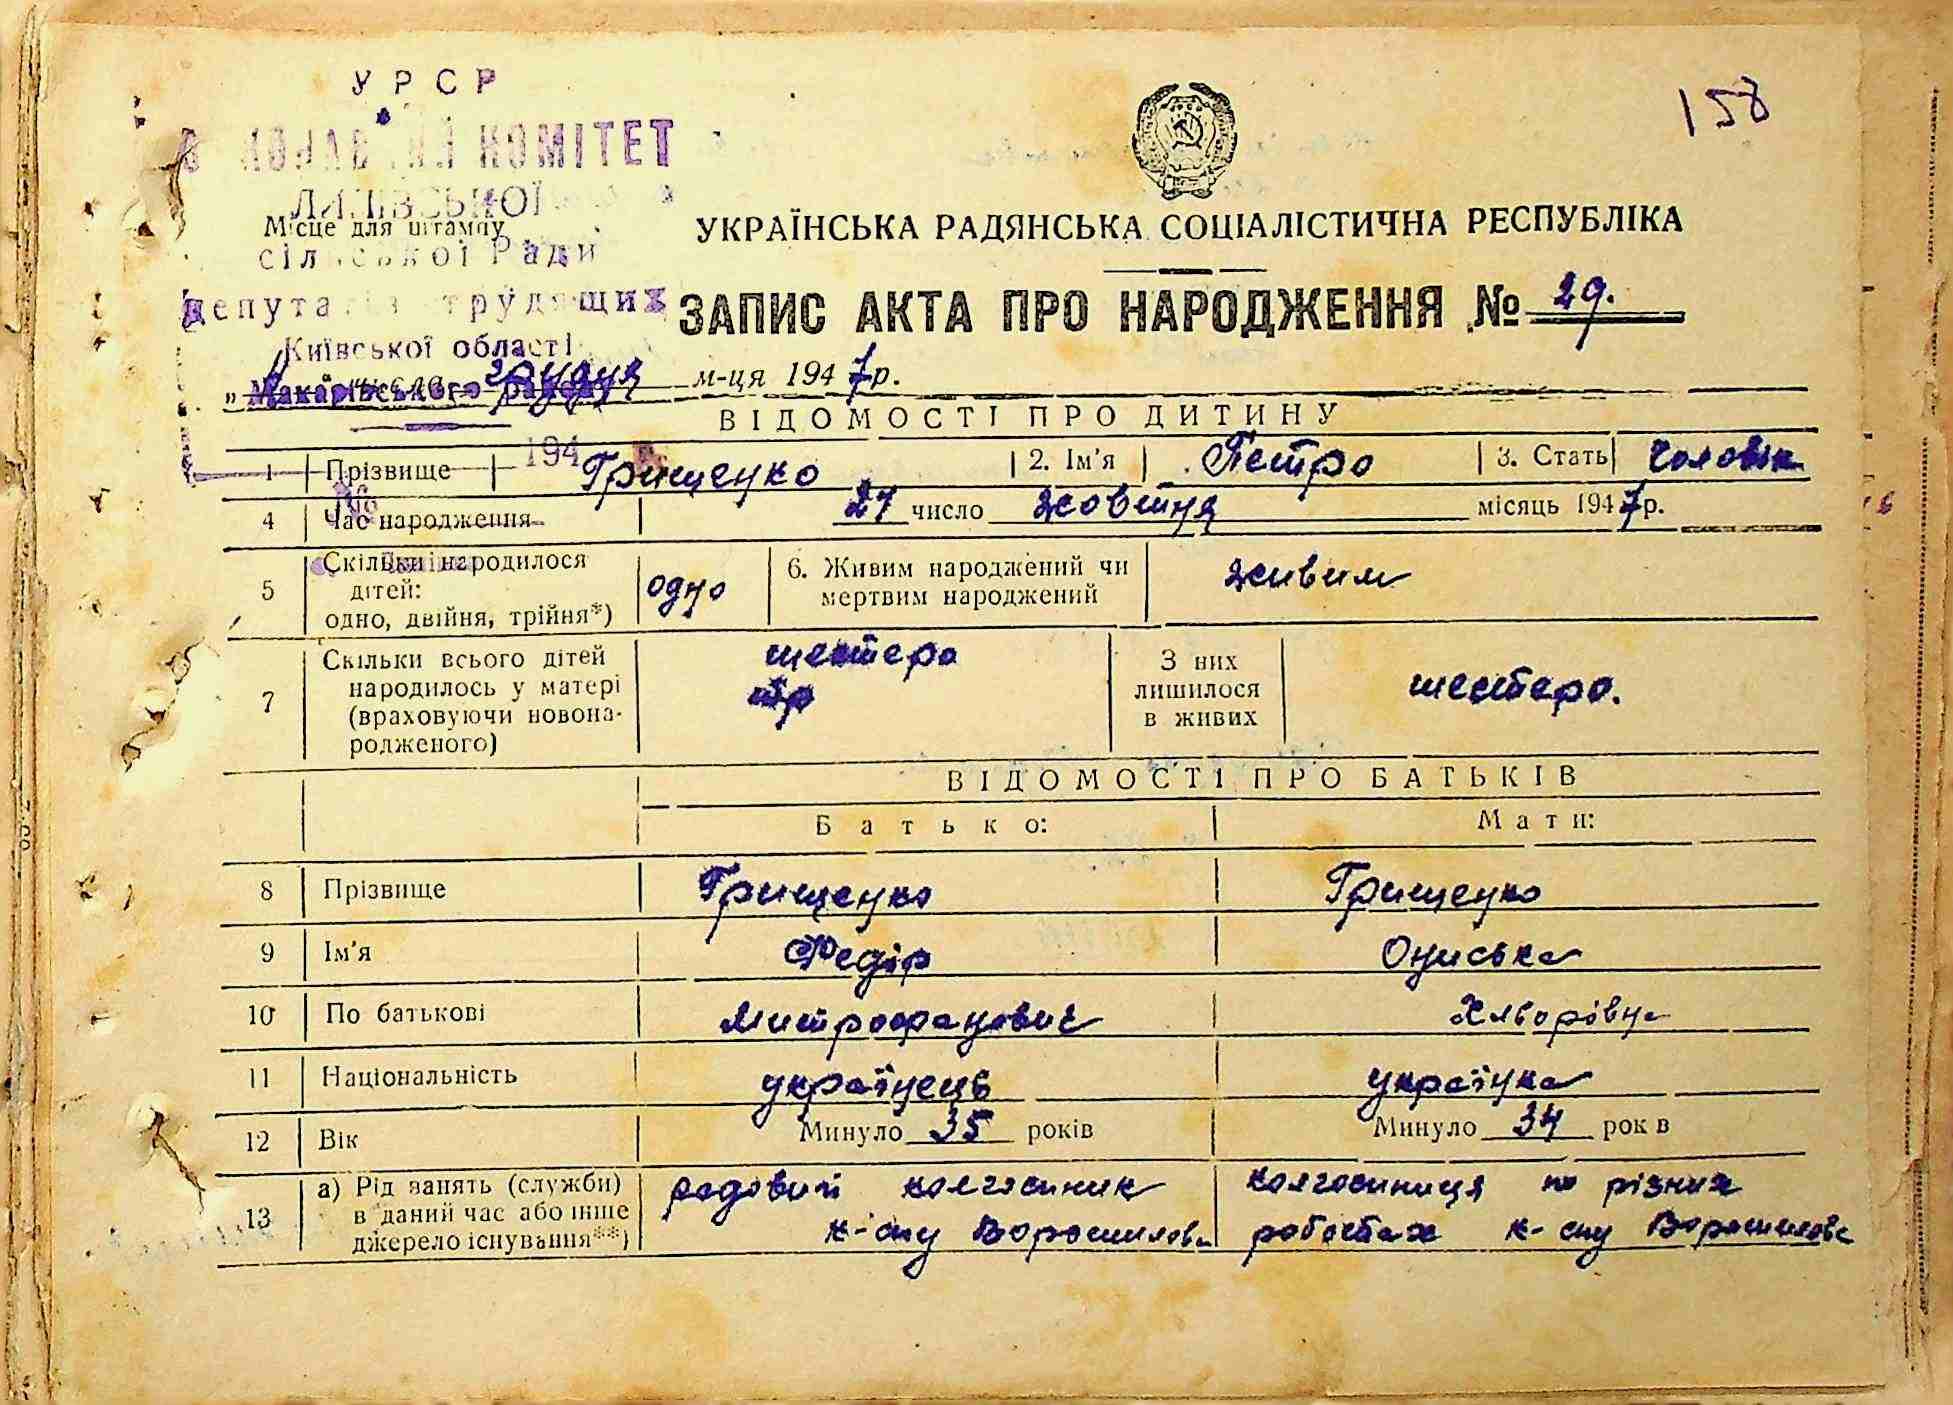 158
УРСР
КОМІТЕТ
Місце для штампу
сільської Ради
депутатів трудящих
Київської області
Макарівського району
УКРАЇНСЬКА РАДЯНСЬКА СОЦІАЛІСТИЧНА РЕСПУБЛІКА
ЗАПИС АКТА ПРО НАРОДЖЕННЯ № 29.
" грудня м-ця 1947 р.
ВІДОМОСТІ ПРО ДИТИНУ
194
1 Прізвище Грищенко 2. Ім'я Петро 3. Стать чоловік
4 Час народження 27 число жовтня місяць 1947 р.
5 Скільки народилося
дітей:
одно, двійня, трійня*) одно 6. Живим народжений чи
мертвим народжений живим
7 Скільки всього дітей
народилось у матері
(враховуючи новона-
родженого) шестеро З них
лишилося
в живих шестеро.
ВІДОМОСТІ ПРО БАТЬКІВ
Батько: Мати:
8 Прізвище Грищенко Грищенко
9 Ім'я Федір Ониська
10 По батькові Митрофанович Хяворівна
11 Національність українець українка
12 Вік Минуло 35 років Минуло 34 рок в
13 а) Рід занять (служби)
в даний час або інше
джерело існування**) рядовий колгоспник
к-спу Ворошилова колгоспниця по різних
роботах к-спу Ворошилова